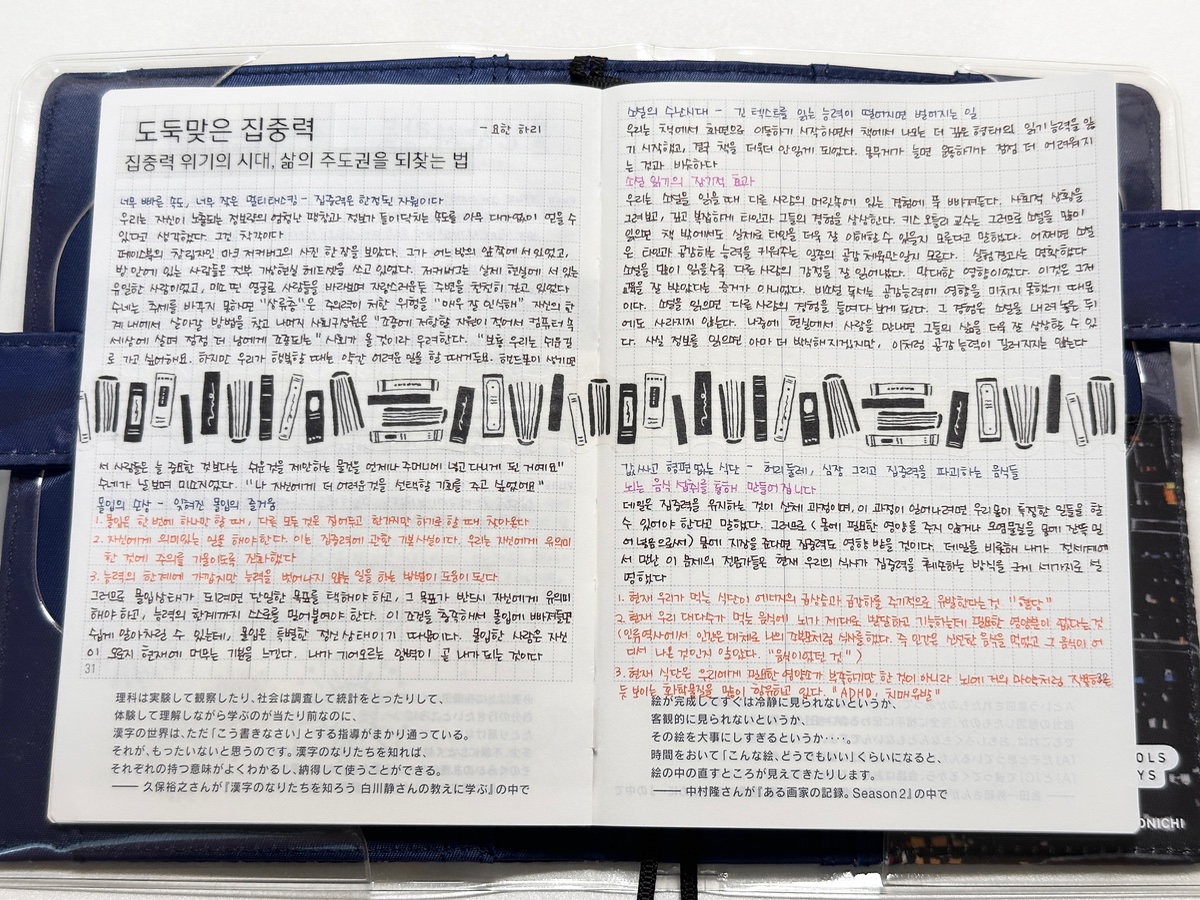 도둑맞은 집중력
- 요한 하리
집중력 위기의 시대, 삶의 주도권을 되찾는 법
너무 빠른 속도, 너무 잦은 멀티태스킹 - 집중력은 한정된 자원이다
우리는 자신이 노출되는 정보량의 엄청난 팽창과 정보가 들이닥치는 속도를 아무 대가없이 얻을 수
있다고 생각했다. 그건 착각이다
페이스북의 창립자인 마크 저커버그의 사진 한 장을 보았다. 그가 어느 방의 앞쪽에 서있었고,
방 안에 있는 사람들은 전부 가상현실 헤드셋을 쓰고 있었다. 저커버그는 실제 현실에 서 있는
유일한 사람이었고, 미소 띤 얼굴로 사람들을 바라보며 자랑스러운듯 주변을 천천히 걷고 있었다
수네는 추세를 바꾸지 못하면 "상류층"은 주의력이 처한 위험을 "매우 잘 인식해" 자신의 한
계 내에서 살아갈 방법을 찾고 나머지 사회구성원은 "조종에 저항할 자원이 적어서 컴퓨터 속
세상에 살며 점점 더 남에게 조종되는" 사회가 올 것이라 우려한다. "보통 우리는 쉬운길
로 가고 싶어해요. 하지만 우리가 행복할 때는 약간 어려운 일을 할 때거든요. 핸드폰이 생기면
서 사람들은 늘 중요한 것보다는 쉬운것을 제안하는 물건을 언제나 주머니에 넣고 다니게 된 거예요"
수네가 날 보며 미소지었다. "나 자신에게 더 어려운것을 선택할 기회를 주고 싶었어요"
몰입의 손상 - 잊혀진 몰입의 즐거움
1. 몰입은 한 번에 하나만 할 때, 다른 모든 것은 접어두고 한가지만 하기로 할 때 찾아온다
2. 자신에게 의미있는 일을 해야한다. 이는 집중력에 관한 기본사실이다. 우리는 자신에게 유의미
한 것에 주의를 기울이도록 진화했다
3. 능력의 한계에 가깝지만 능력을 벗어나지 않는 일을 하는 방법이 도움이 된다
그러므로 몰입상태가 되려면 단일한 목표를 택해야 하고, 그 목표가 반드시 자신에게 유의미
해야 하고, 능력의 한계까지 스스로를 밀어붙여야 한다. 이 조건을 충족해서 몰입에 빠져들면
쉽게 알아차릴 수 있는데, 몰입은 특별한 정신 상태이기 때문이다. 몰입한 사람은 자신
이 오로지 현재에 머무는 기분을 느낀다. 내가 기어오르는 암벽이 곧 내가 되는 것이다
31
理科は実験して観察したり、社会は調査して統計をとったりして、
体験して理解しながら学ぶのが当たり前なのに、
漢字の世界は、ただ「こう書きなさい」とする指導がまかり通っている。
それが、もったいないと思うのです。漢字のなりたちを知れば、
それぞれの持つ意味がよくわかるし、納得して使うことができる。
—— 久保裕之さんが『漢字のなりたちを知ろう 白川静さんの教えに学ぶ』の中で
소설의 수난시대 - 긴 텍스트를 읽는 능력이 떨어지면 벌어지는 일
우리는 책에서 화면으로 이동하기 시작하면서 책에서 나오는 더 깊은 형태의 읽기 능력을 잃
기 시작했고, 결국 책을 더욱더 안 읽게 되었다. 몸무게가 늘면 운동하기가 점점 더 어려워지
는 것과 비슷하다
소설 읽기의 장기적 효과
우리는 소설을 읽을 때 다른 사람의 머릿속에 있는 경험에 푹 빠져든다. 사회적 상황을
그려보고, 깊고 복잡하게 타인과 그들의 경험을 상상한다. 키스 오틀리 교수는 그러므로 소설을 많이
읽으면 책 밖에서도 실제로 타인을 더욱 잘 이해할 수 있을지 모른다고 말했다. 어쩌면 소설
은 타인과 공감하는 능력을 키워주는 일종의 공감 체육관인지 모른다. 실험결과는 명확했다
소설을 많이 읽을수록 다른 사람의 감정을 잘 읽어냈다. 막대한 영향이었다. 이것은 그저
교육을 잘 받았다는 증거가 아니었다. 비소설 독서는 공감능력에 영향을 미치지 못했기 때문
이다. 소설을 읽으면 다른 사람의 경험을 들여다 보게 된다. 그 경험은 소설을 내려놓은 뒤
에도 사라지지 않는다. 나중에 현실에서 사람을 만나면 그들의 삶을 더욱 잘 상상할 수 있
다. 사실 정보를 읽으면 아마 더 박식해지겠지만, 이처럼 공감 능력이 길러지지는 않는다
값싸고 형편 없는 식단 - 허리둘레, 심장 그리고 집중력을 파괴하는 음식들
뇌는 음식 섭취를 통해 만들어집니다
데일은 집중력을 유지하는 것이 신체 과정이며, 이 과정이 일어나려면 우리몸이 특정한 일들을 할
수 있어야 한다고 말했다. 그러므로 (몸에 필요한 영양을 주지 않거나 오염물질을 몸에 잔뜩 밀
어넣음으로서) 몸에 지장을 준다면 집중력도 영향 받을 것이다. 데일을 비롯해 내가 전세계에
서 만난 이 문제의 전문가들은 현재 우리의 식사가 집중력을 훼손하는 방식을 크게 세가지로 설
명했다
1. 현재 우리가 먹는 식단이 에너지의 급상승과 급강하를 주기적으로 유발한다는 것 "혈당"
2. 현재 우리 대다수가 먹는 음식에 뇌가 제대로 발달하고 기능하는데 필요한 영양분이 없다는것
(인류역사에서 인간은 대체로 나의 조부처럼 식사를 했다. 즉 인간은 신선한 음식을 먹었고 그 음식이 어
디서 나온 것인지 알았다. "음식이었던 것")
3. 현재 식단은 우리에게 필요한 영양소가 부족하기만 한 것이 아니라 뇌에 거의 마약처럼 작용하는
듯 보이는 화학물질을 많이 함유하고 있다. "ADHD, 치매유발"
絵が完成してすぐは冷静に見られないというか、
客観的に見られないというか、
その絵を大事にしすぎるというか・・・。
時間をおいて「こんな絵、どうでもいい」くらいになると、
絵の中の直すところが見えてきたりします。
—— 中村隆さんが『ある画家の記録。Season2』の中で
OLS
YS
ONICHI